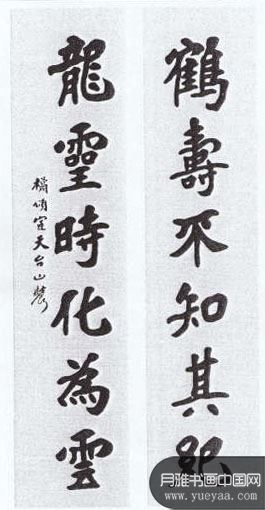 鶴壽不知其紀
龍靈時化為雲
橘頌宦天台山農
月雅书画中国网
www.yueyaa.com